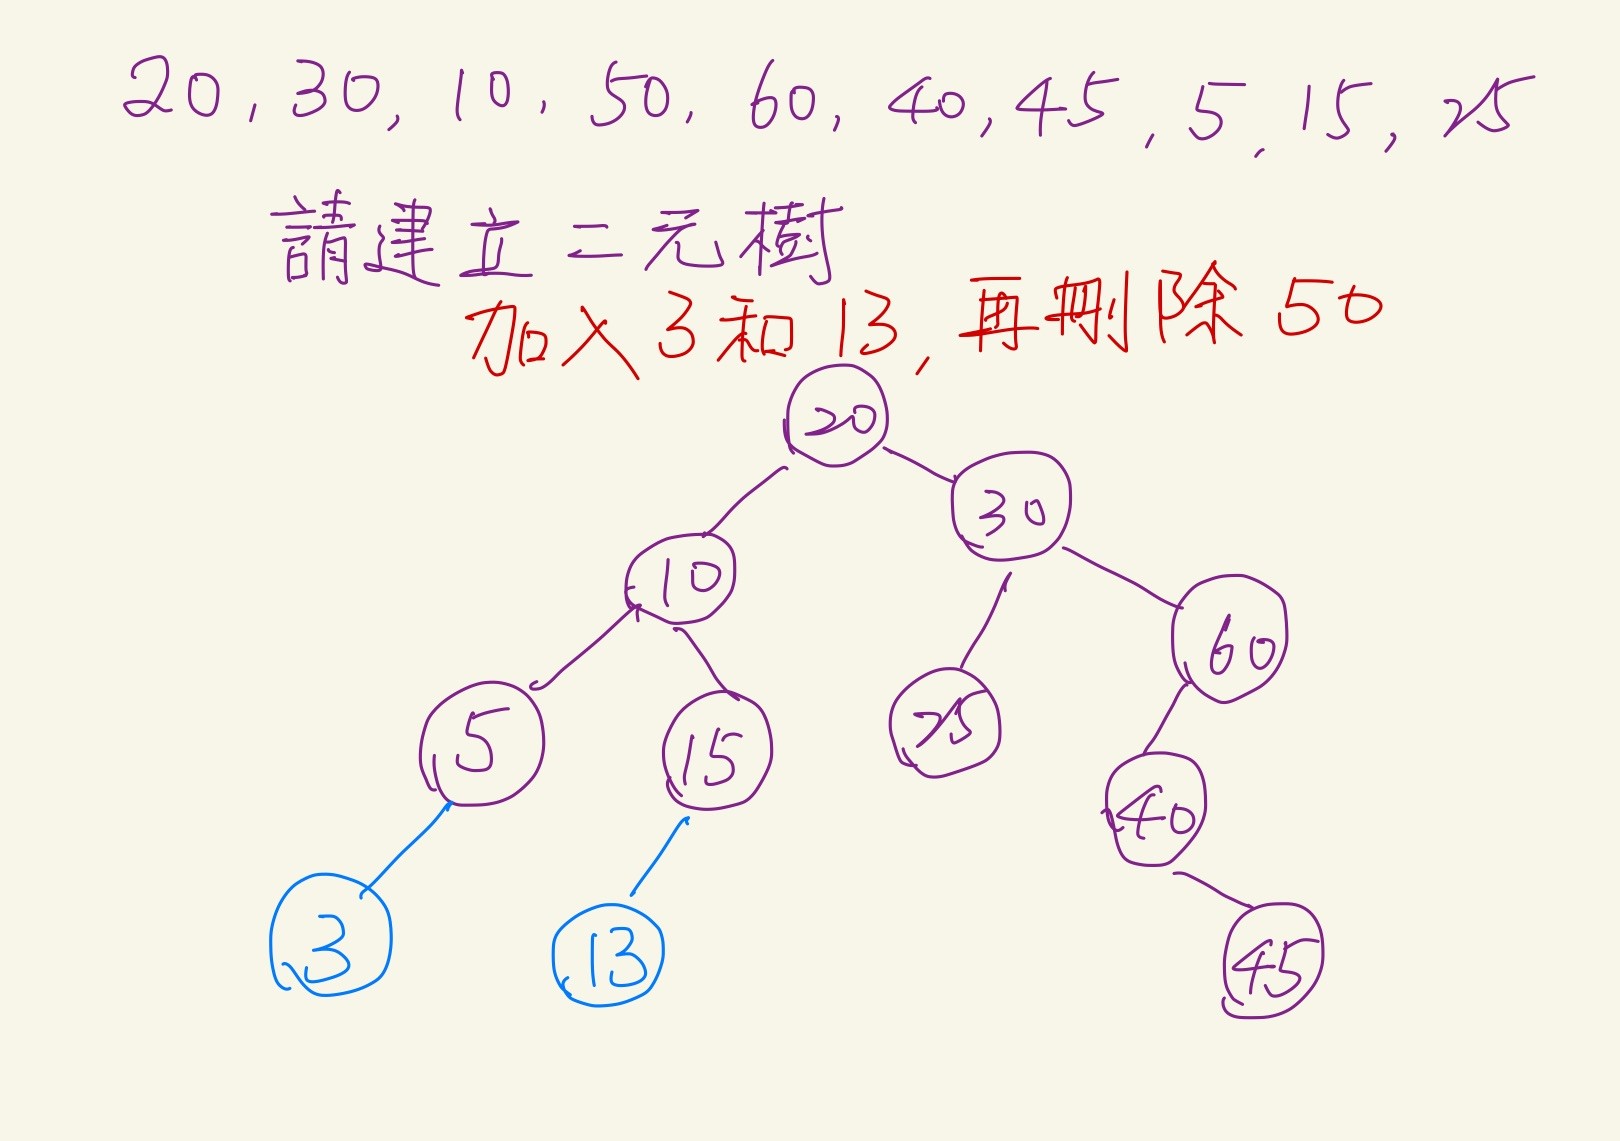 20, 30, 10, 50, 60, 40, 45, 5, 15, 25
請建立二元樹
加入3和13, 再刪除50
20
30
10
60
5
15
25
40
3
13
45